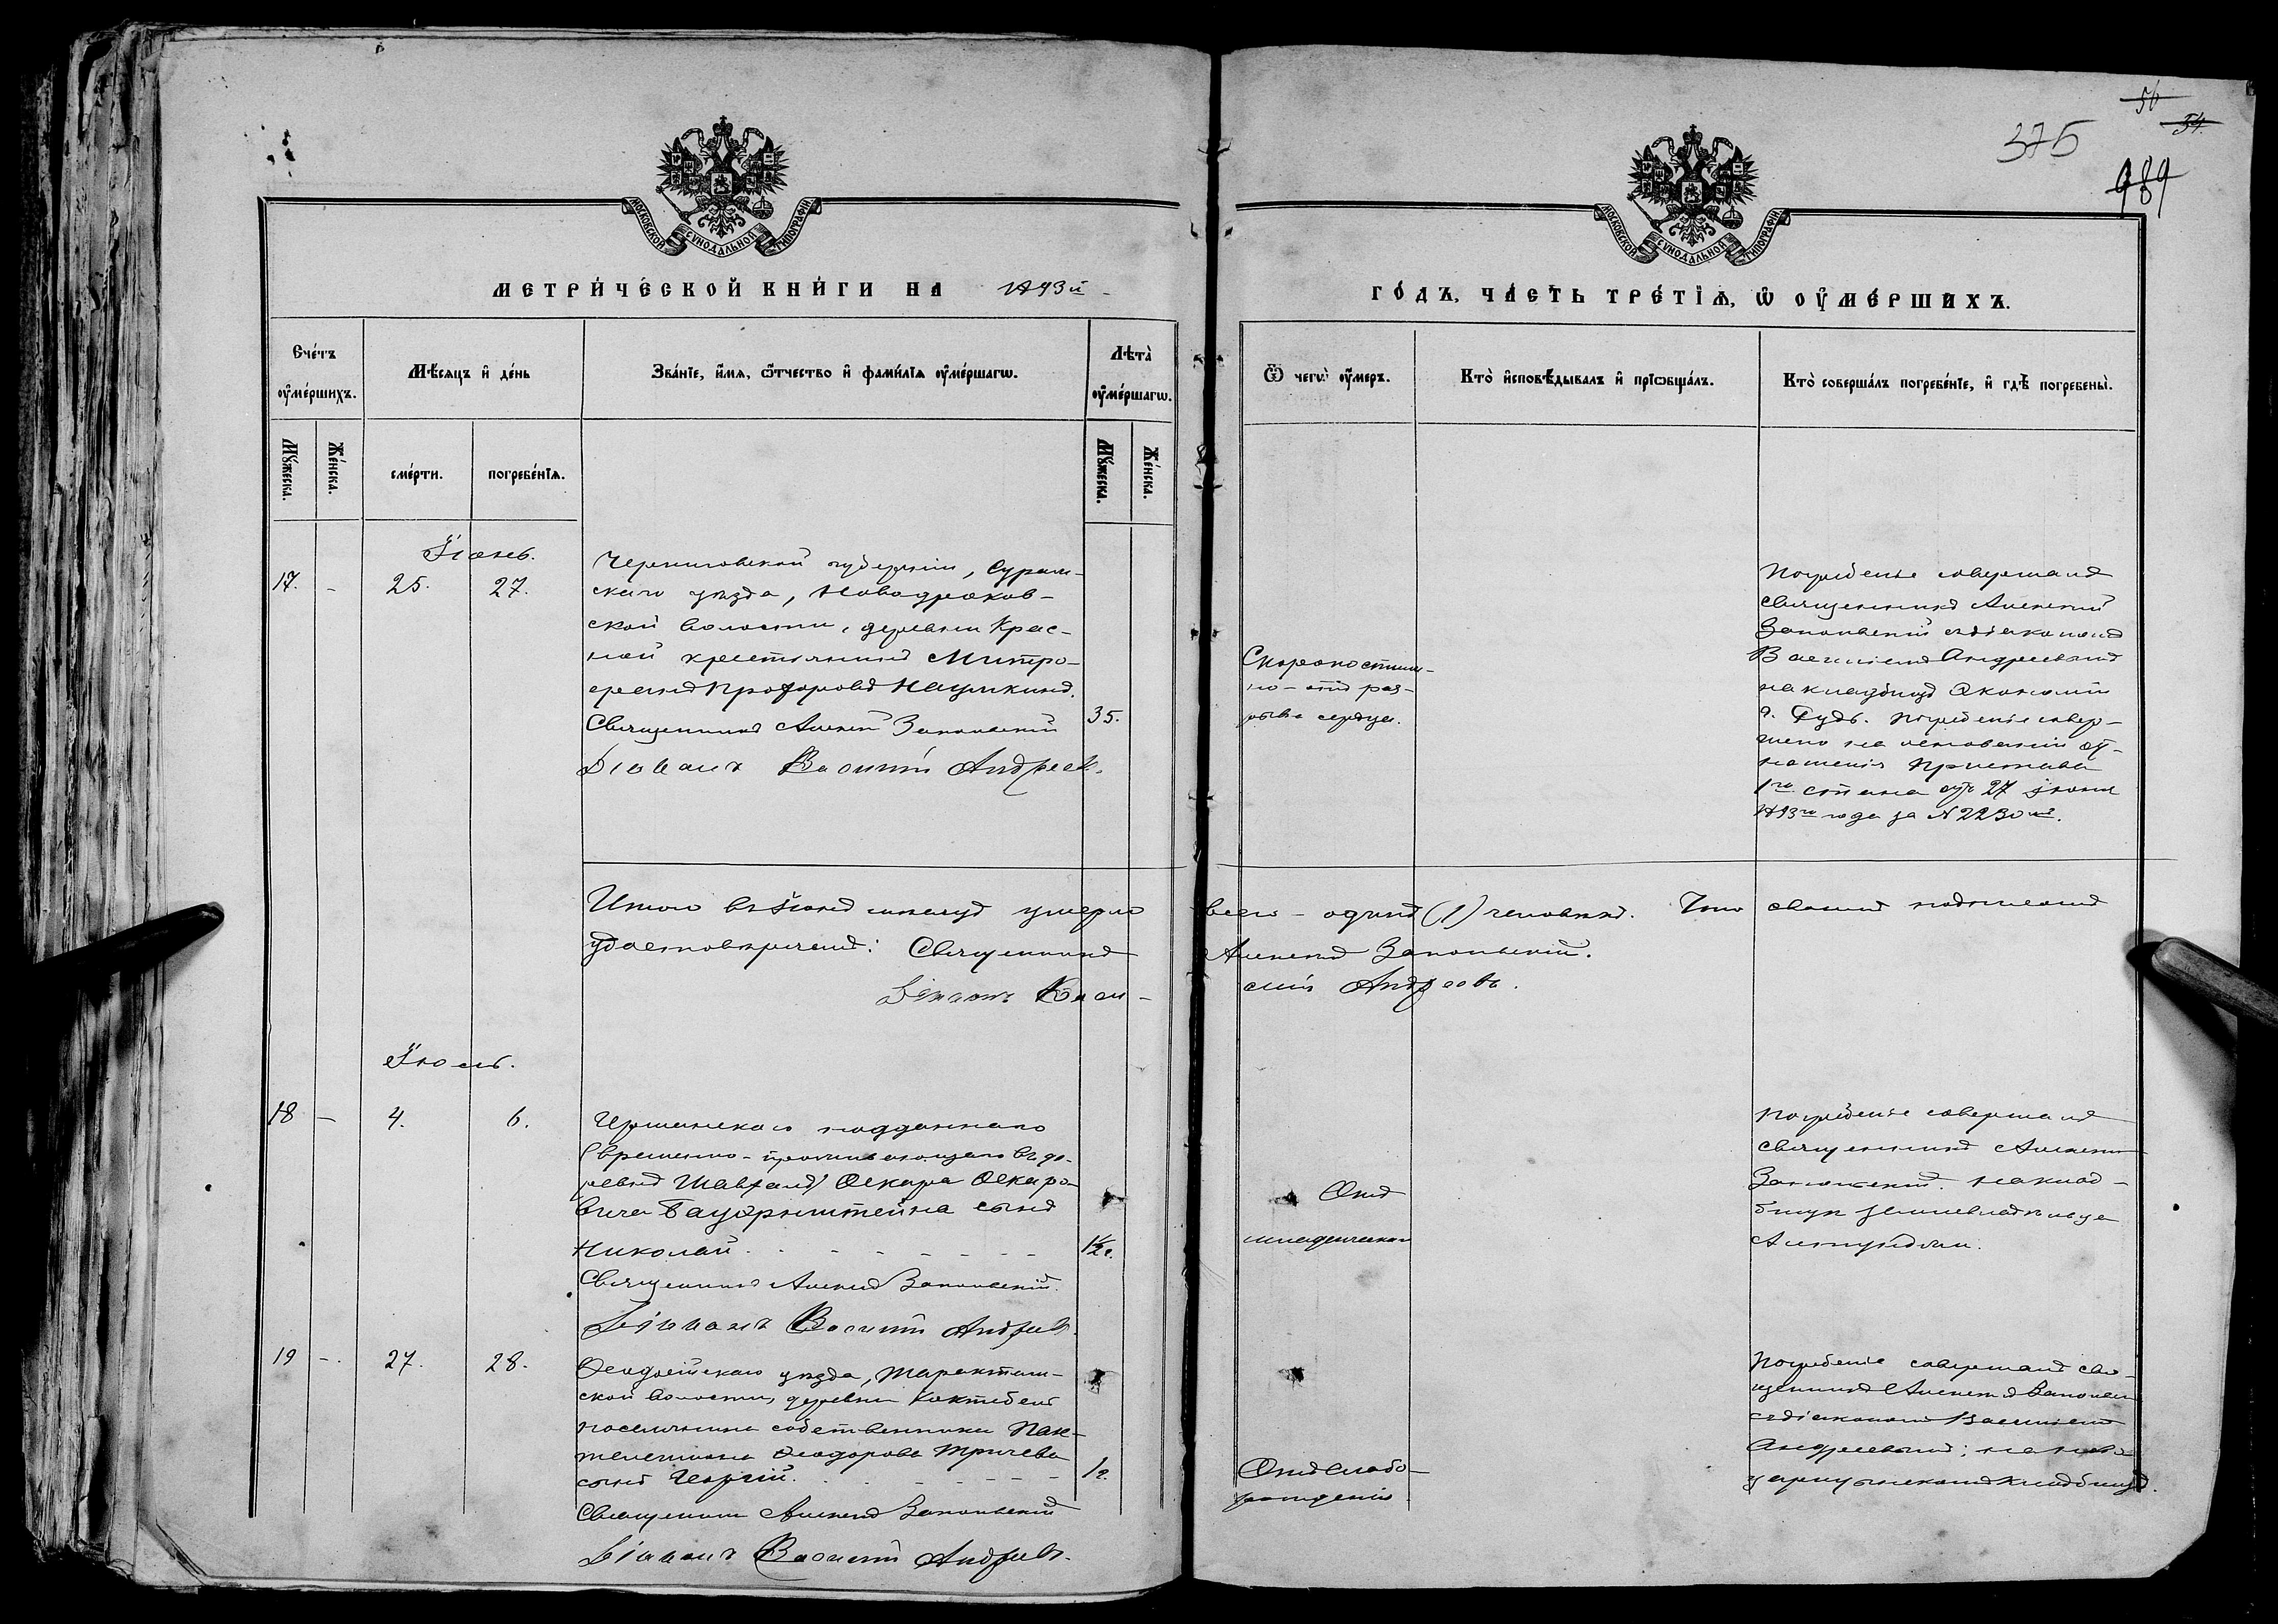 56
54.
375
989
МОСКОВСКОЙ СѴНОДАЛЬНОЙ ТИПОГРАФІИ
МОСКОВСКОЙ СѴНОДАЛЬНОЙ ТИПОГРАФІИ
МЕТРИ́ЧЕСКОЙ КНИ́ГИ НА 1893й
ГО́ДЪ, ЧА́СТЬ ТРЕ́ТІѦ, Ѡ҆ ОУ҆МЕ́РШИХЪ.
Счéтъ оу҆мéршихъ.
Мѣ́сяцъ и҆ де́нь
Зва́нїе, и҆́мя, ѻ҆́тчество и҆ фами́лїя оу҆ме́ршагѡ.
Лѣта̀ оу҆ме́ршагѡ.
Ѿ чегѡ̀ оу҆́меръ.
Кто̀ и҆сповѣ́дывалъ и҆ прїѡбща́лъ.
Кто̀ соверша́лъ погребе́нїе, и҆ гдѣ̀ погребены̀.
Му́жеска.
Же́нска.
сме́рти.
погребе́нїѧ.
Му́жеска.
Же́нска.
Іюнь.
17. - 25. 27.
Черниговской губерніи, Сураж-
скаго уѣзда, Новодроков-
ской волости, деревни Крас-
ной крестьянинъ Митро-
фанъ Прохоровъ Наумкинъ.
35.
Священникъ Алексій Запольскій
Діаконъ Василій Андреев.
Скоропостиж-
но - отъ раз-
рыва сердца.
Погребеніе совершалъ
священникъ Алексій
Запольскій съ діакономъ
Василіемъ Андреевымъ
на кладбищѣ Экономіи
Погребеніе совер-
шено на основаніи от-
ношенія Пристава
1го стана отъ 27 іюня
1893го года за № 2230мъ.
Итого въ Іюнѣ мѣсяцѣ умерло всего - одинъ (1) человѣкъ. Что своимъ подписомъ
удостовѣряемъ: Священникъ Алексій Запольскій.
Діаконъ Василій Андреевъ.
Іюль.
18 - 4. 6.
Германскаго подданнаго
(временно-проживающаго въ де-
ревнѣ Оскара Оскаро-
вича сынъ
Николай
1/2 г.
Священникъ Алексій Запольскій.
Діаконъ Василій Андреев.
Отъ
младенческой
Погребеніе совершалъ
священникъ Алексій
Запольскій на клад-
бищѣ землевладѣльца
19 - 27. 28.
Ѳеодосійскаго уѣзда, Таракташ-
ской волости, деревни Коктебель
поселянина собственника Пан-
телеимона Ѳеодорова Тричева
сынъ Георгій.
1 г.
Священникъ Алексій Запольскій
Діаконъ Василій Андреев.
Отъ слабо-
рожденія
Погребеніе совершалъ свя-
щенникъ Алексій Запольскій
съ діакономъ Василіемъ
Андреевымъ; на
кладбищѣ.